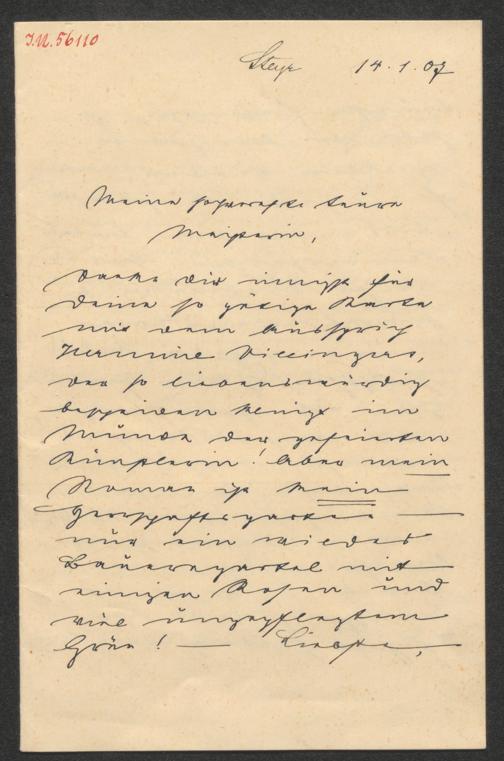 I.N. 56110
Steyr 14.1.07
Meine hochverehrte teure
Meisterin,
Danke Dir innigst für
Deine so gütige Karte
mit dem Ausspruch
Hermine Villingers,
der so liebenswürdig
bescheiden klingt im
Munde der gefeierten
Künstlerin! Aber mein
Roman ist kein
Herrschaftsgarten —
nur ein wildes
Bauerngartel mit
einigen Rosen und
viel ungepflegtem
Grün! — Liebste,